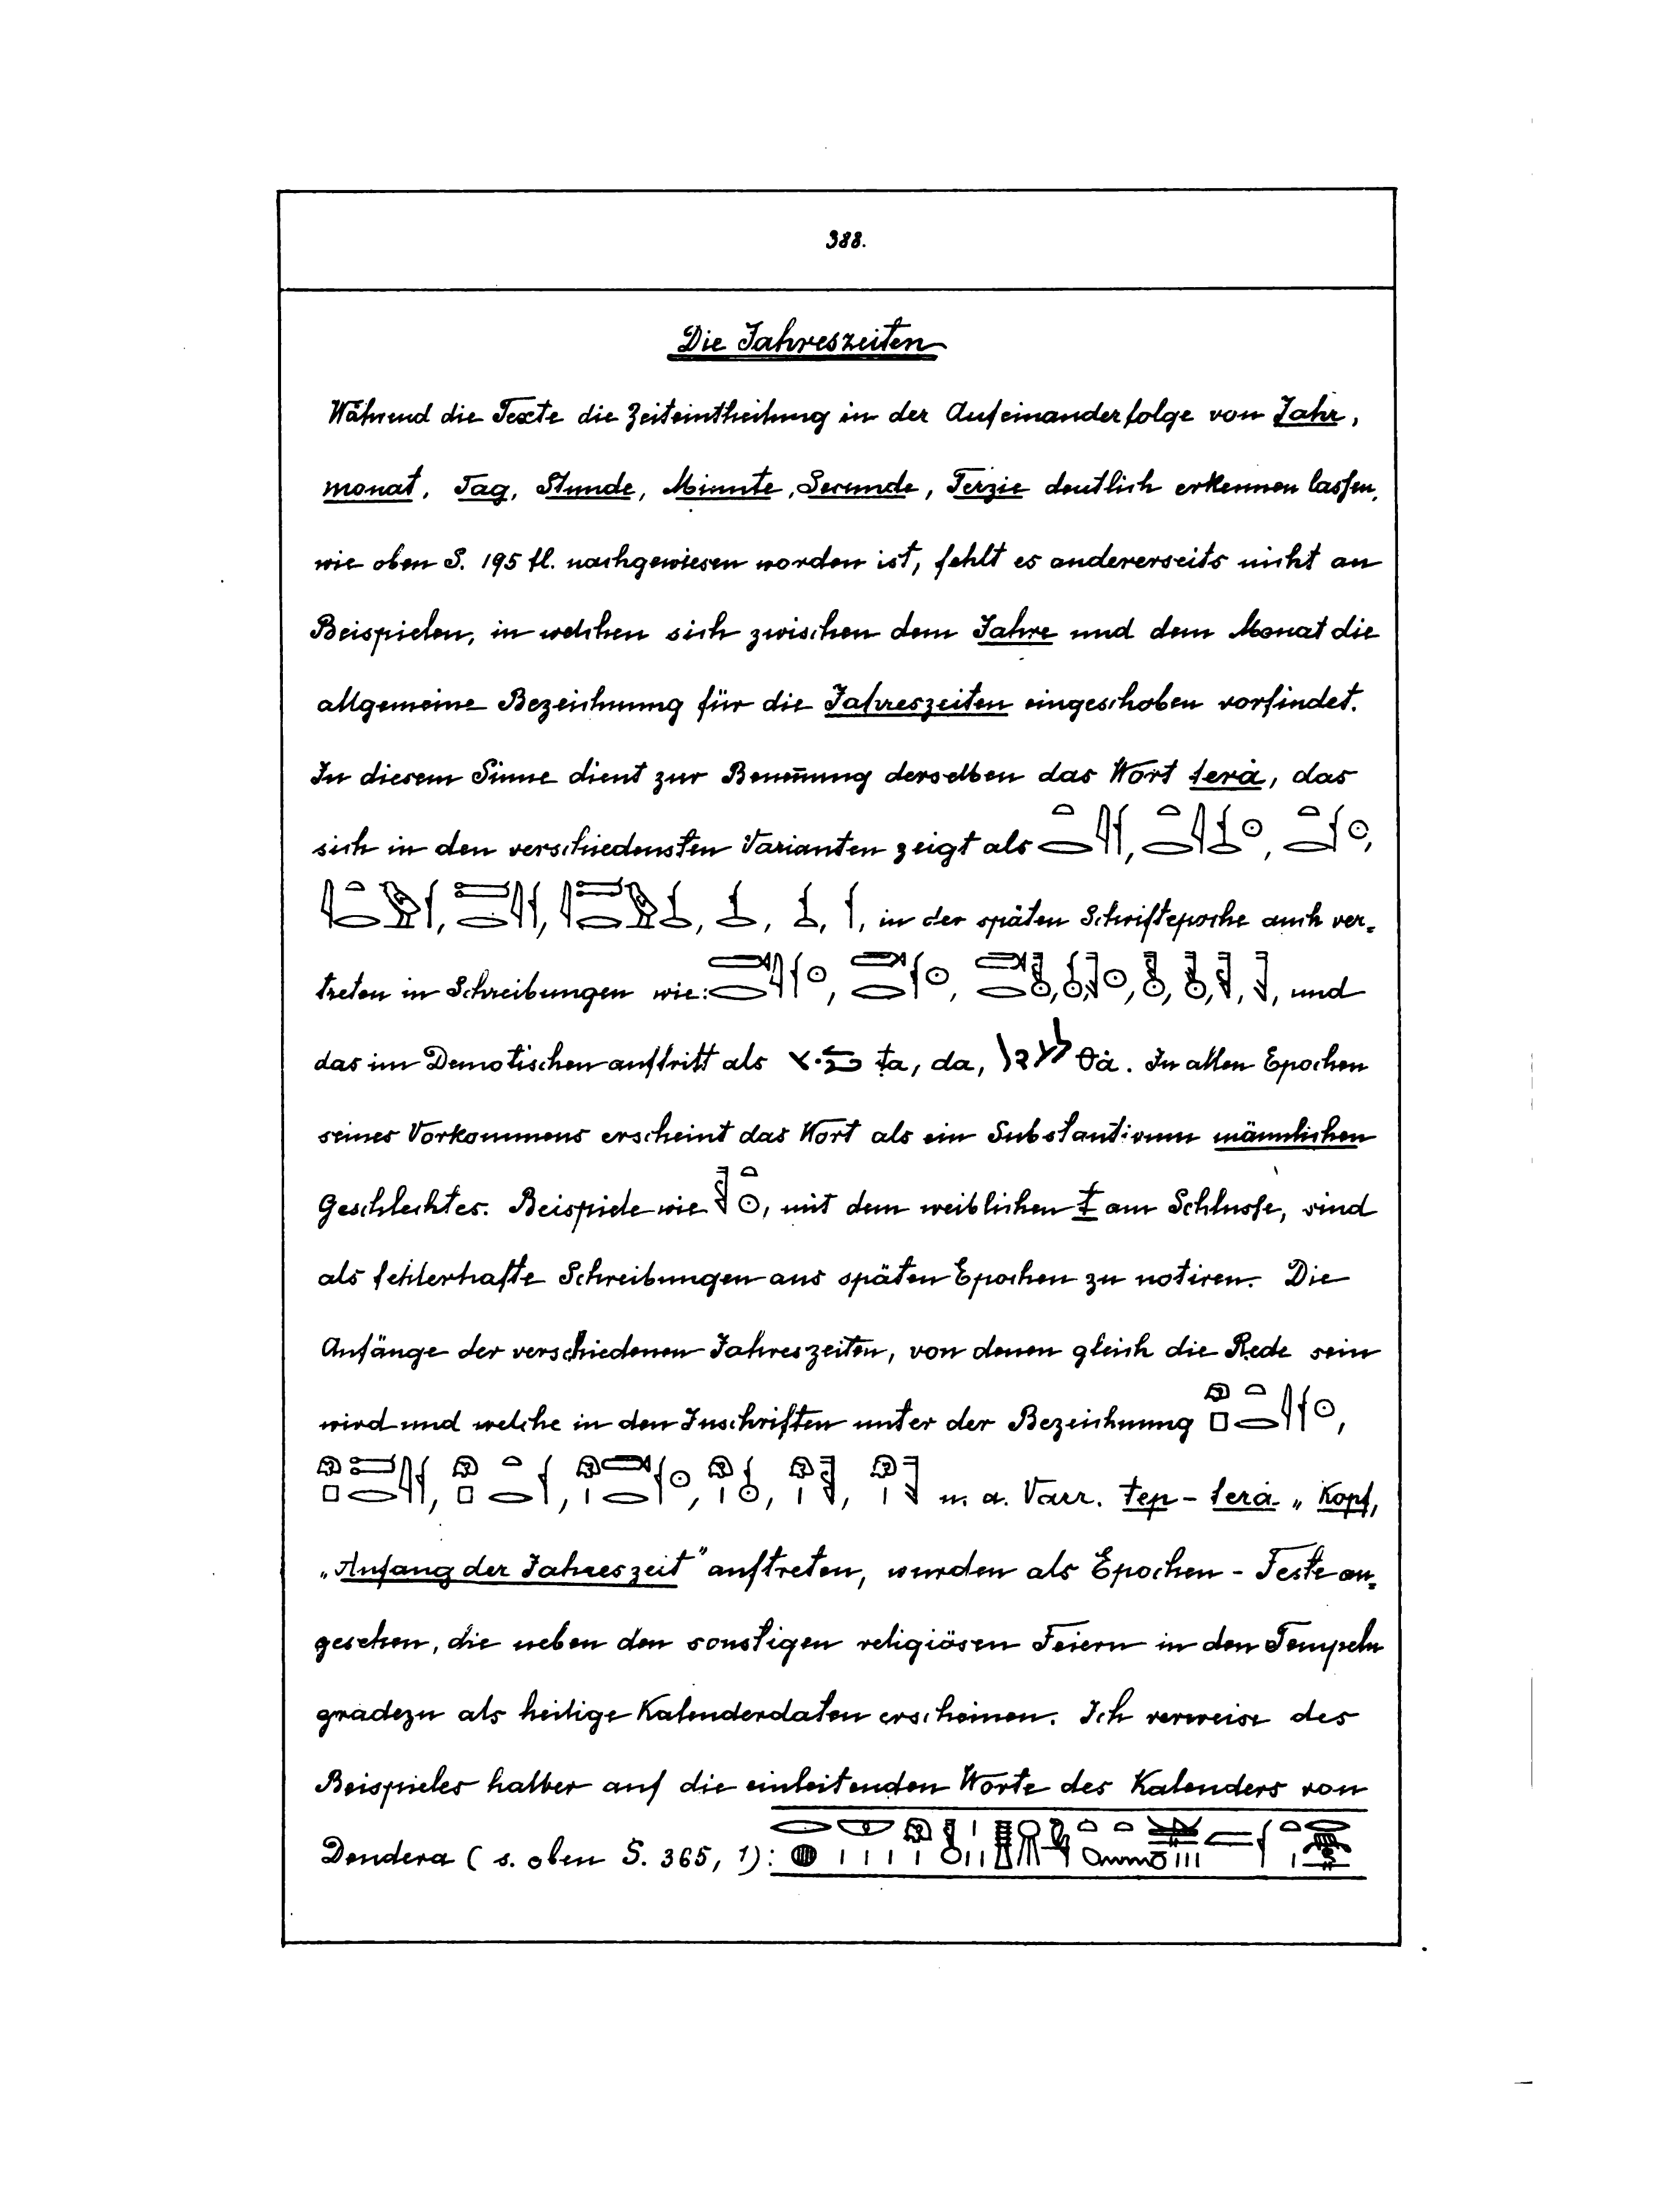 388.
Die Jahreszeiten
Während die Texte die Zeiteintheilung in der Aufeinanderfolge von Jahr,
Monat, Tag, Stunde, Minute, Secunde, Terzie deutlich erkennen lassen,
wie oben S. 195 fl. nachgewiesen worden ist, fehlt es andererseits nicht an
Beispielen, in welchen sich zwischen dem Jahre und dem Monat die
allgemeine Bezeichnung für die Jahreszeiten eingeschoben vorfindet.
In diesem Sinne dient zur Benennung derselben das Wort terȧ, das
sich in den verschiedensten Varianten zeigt als
in der späten Schriftepoche auch ver-
treten in Schreibungen wie: und
das im Demotischen auftritt als ṭa, da, θȧ. In allen Epochen
seines Vorkommens erscheint das Wort als ein Substantivum männlichen
Geschlechtes. Beispiele wie , mit dem weiblichen ṭ am Schlusse, sind
als fehlerhafte Schreibungen aus späten Epochen zu notiren. Die
Anfänge der verschiedenen Jahreszeiten, von denen gleich die Rede sein
wird und welche in den Inschriften unter der Bezeichnung
u. a. Varr. tep - terȧ „Kopf,
„Anfang der Jahreszeit" auftreten, wurden als Epochen - Feste an-
gesehen, die neben den sonstigen religiösen Feiern in den Tempeln
gradezu als heilige Kalenderdaten erscheinen. Ich verweise des
Beispieles halber auf die einleitenden Worte des Kalenders von
Dendera (s. oben S. 365, 1):